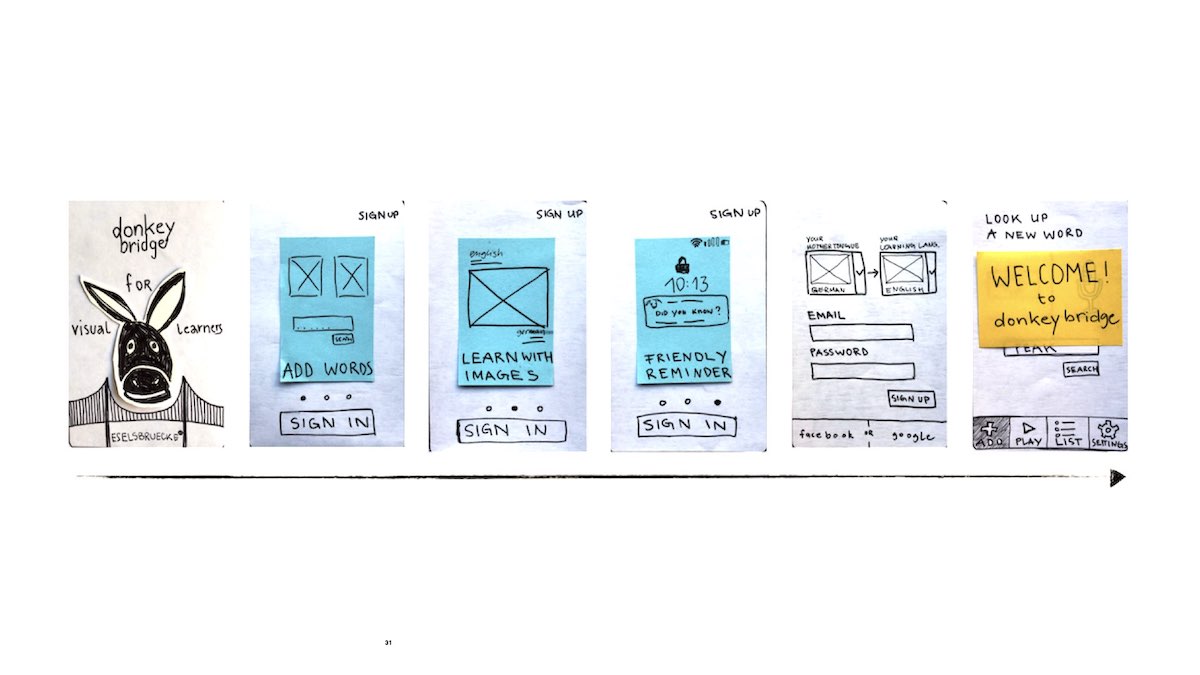 donkey
bridge
for
visual learners
ESELSBRUECKE
SIGN UP
SEND
ADD WORDS
SIGN IN
SIGN UP
english
german
LEARN WITH
IMAGES
SIGN IN
SIGN UP
10:13
DID YOU KNOW?
FRIENDLY
REMINDER
SIGN IN
YOUR
MOTHERTONGUE
YOUR
LEARNING LANG.
GERMAN
ENGLISH
EMAIL
PASSWORD
SIGN UP
facebook OR google
LOOK UP
A NEW WORD
WELCOME!
to
donkey bridge
SEARCH
ADD PLAY LIST SETTINGS
31